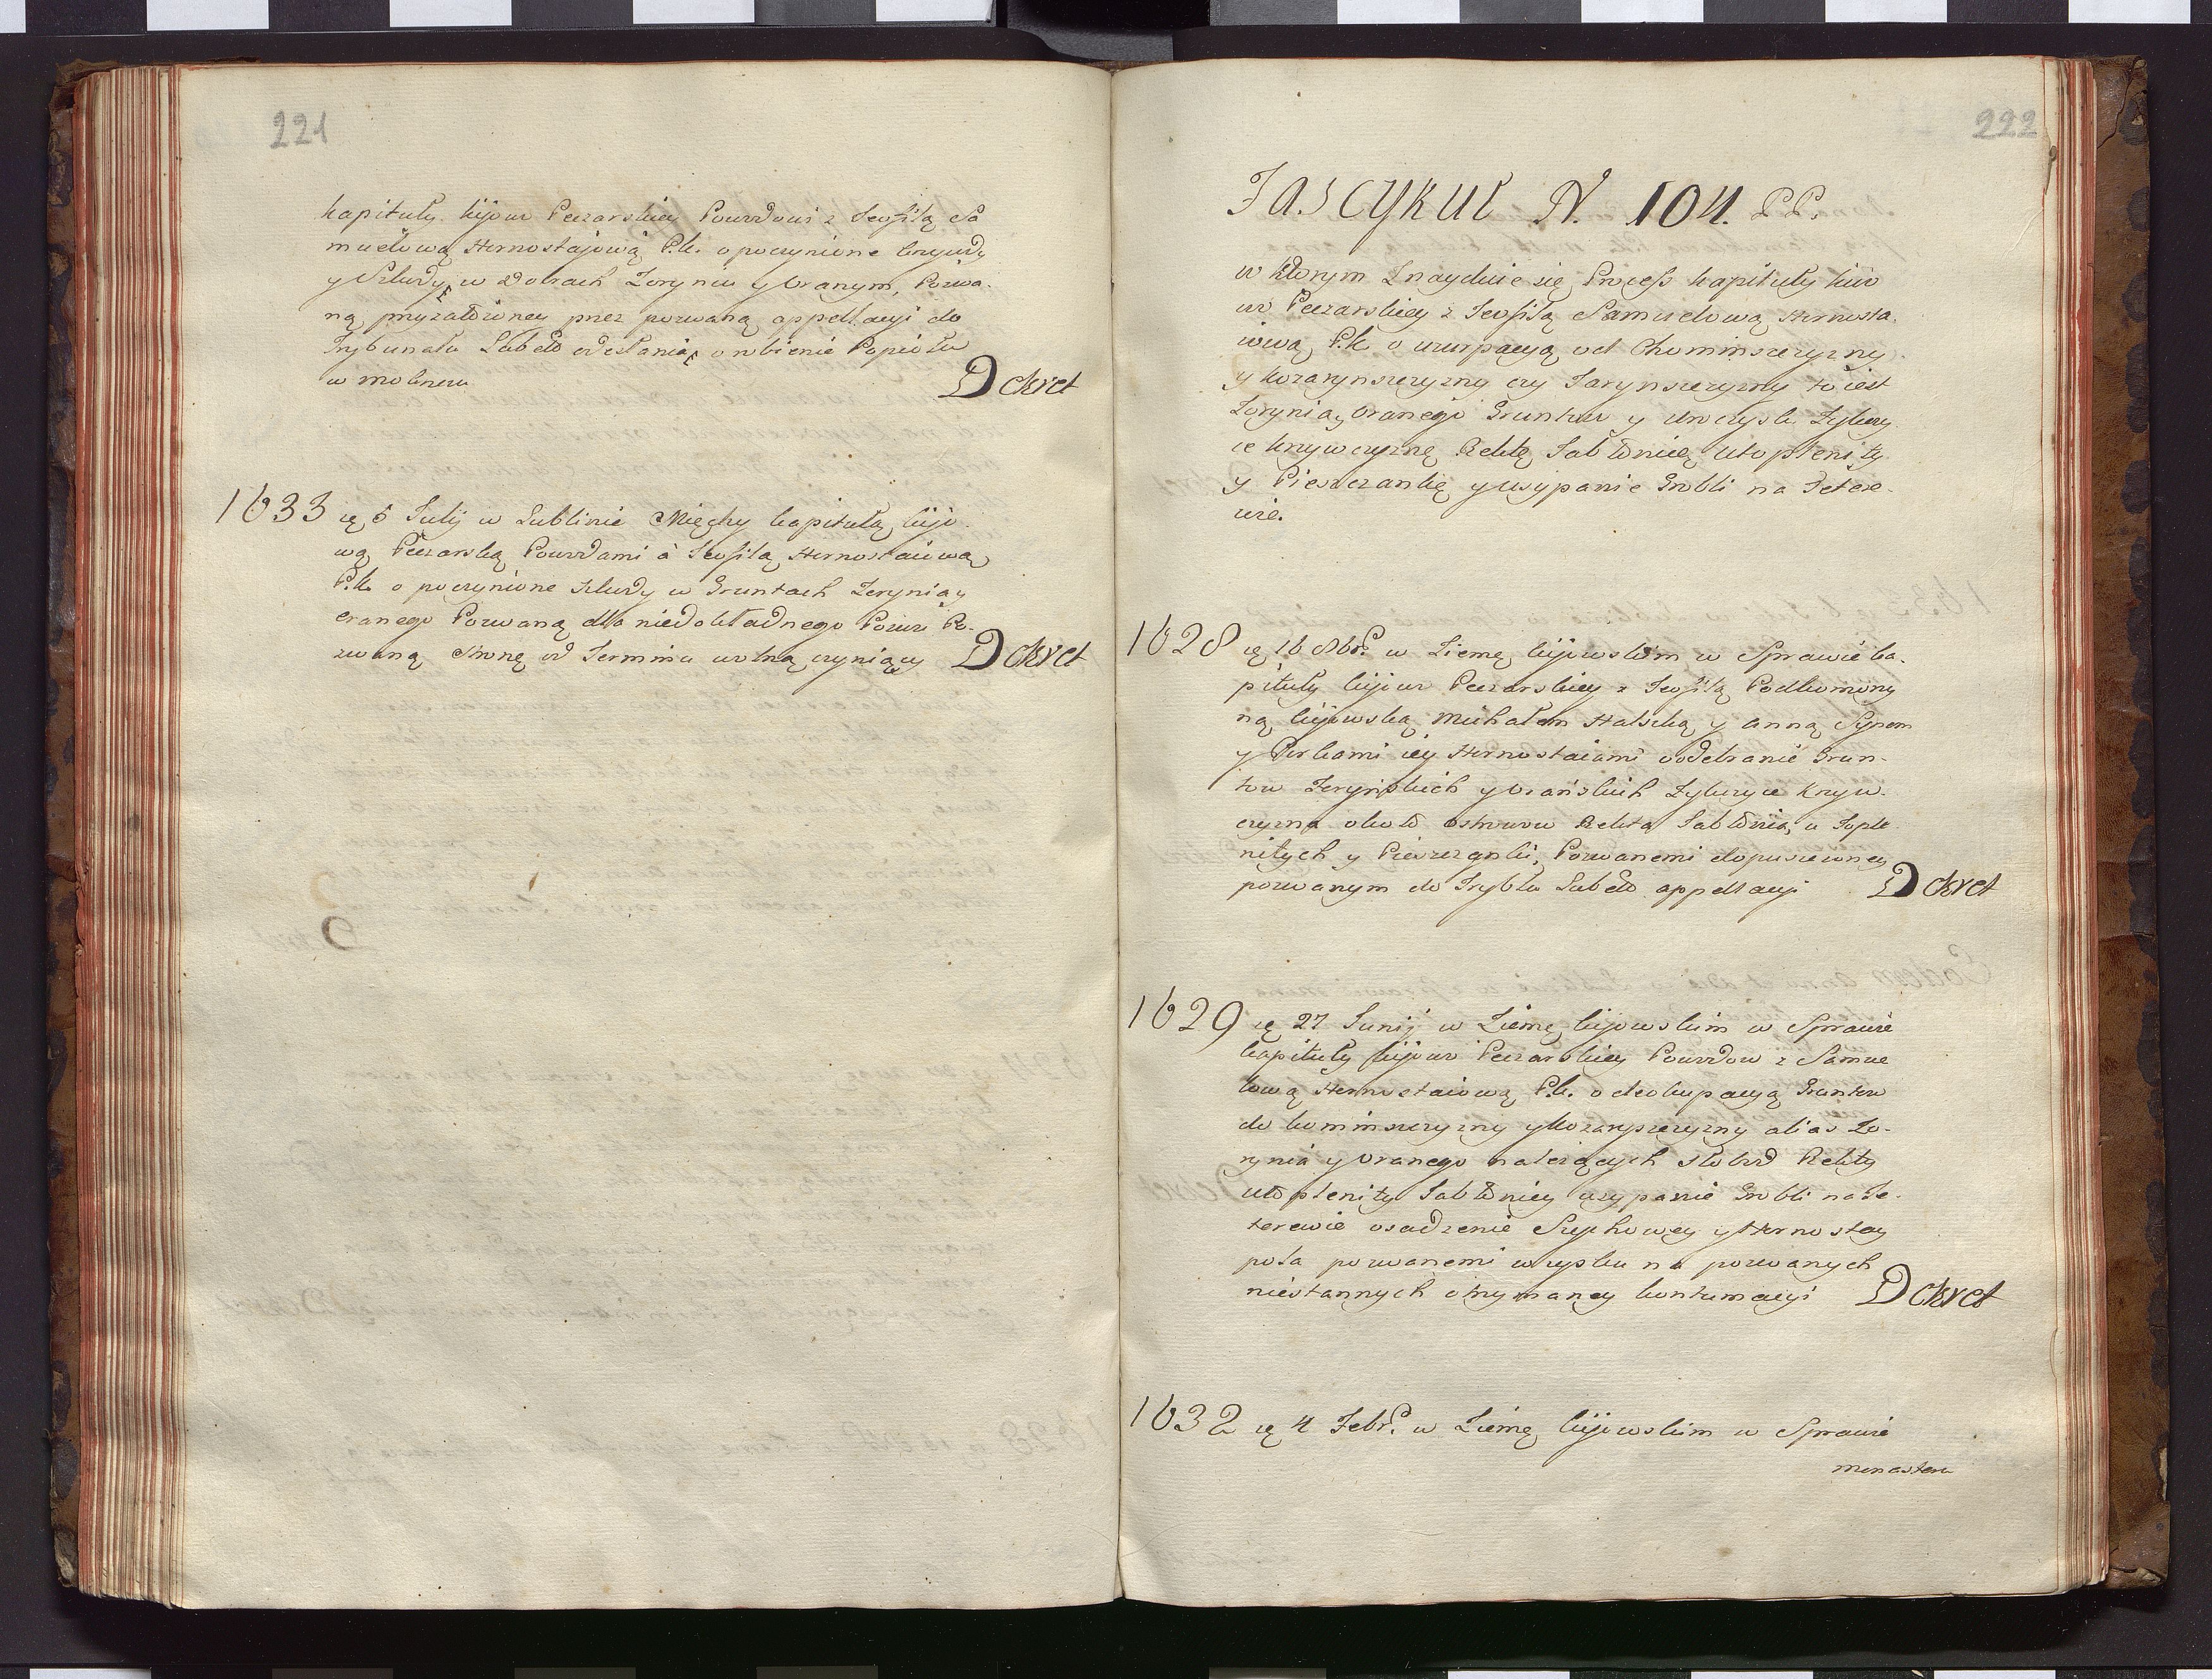 221
kapituły kijow Peczarskiey Powodowi z Teofilą Sa
muelową Hornostajową P.K. o poczynione krzywdy
y Szkody w Dobrach Zoryniu y Oranym, Pozwa-
ną przez pozwaną appellacyi do
Trybunału Lubello odesłanie o robienie Popiołu
Dekret
1633 ię 5 Julij w Lublinie Między kapitułą kijo
wą Peczarską Powodami a Teofilą Hornostaiową
P.K. o poczynione szkody w Gruntach Zorynia y
oranego Pozwaną dla niedokładnego Pozwu Po-
zwaną stronę od Terminu wolną czyniący Dekret
222
Fascykuł N. 104. PP.
w którym Znayduie się Process kapituły kiio
w Peczarskiey z Teofilą Samuelową Hornosta
iową P.K. o uzurpacyą od Chominszczyzny
y kozarynszczyzny czy Zarynszczyzny to iest
Zorynia, oranego Gruntow y Uroczysk Zyburz
ie krzywczyznę Rektę Jabłonicę Utopłenity
y Pieszczankię y usypanie Grobli na Tetere-
wie.
1628 ię 16 8br. w Ziemę kijowskim w Sprawie ka-
pituły kijow Peczarskiey z Teofilą Podkomorzy
ną kijowską Michałem Halszką y Anną Synem
y Corkami iey Hornostaiami o odebranie Grun-
tow Zoryńskich y orańskich Zyburzie krzyw-
czyzna około ostrowow Rekta Jabłonia, u Tople
nitych y Pieszczanki, Pozwanemi dopuszczoney
pozwanym do Trybłu Lubello appellacyi Dekret
1629 ię 27 Junij w Ziemę kijowskim w Sprawie
kapituły kijow Peczarskiey Powodow z Samue
lową Hornostaiową P.K. o deokupacyą Gruntow
do kominszczyzny y kozaryszczyzny alias Zo-
rynia y oranego należących słobod Rekty
utoplenity Jabłonicy usypanie Grobli na Te-
terewie osadzenie Suchowey y Hornostay
pola pozwanemi w zysku na pozwanych
niestannych otrzymaney kontumacyi Dekret
1632 ię 4 Febr. w Ziemę kijowskim w Sprawie
monasteru